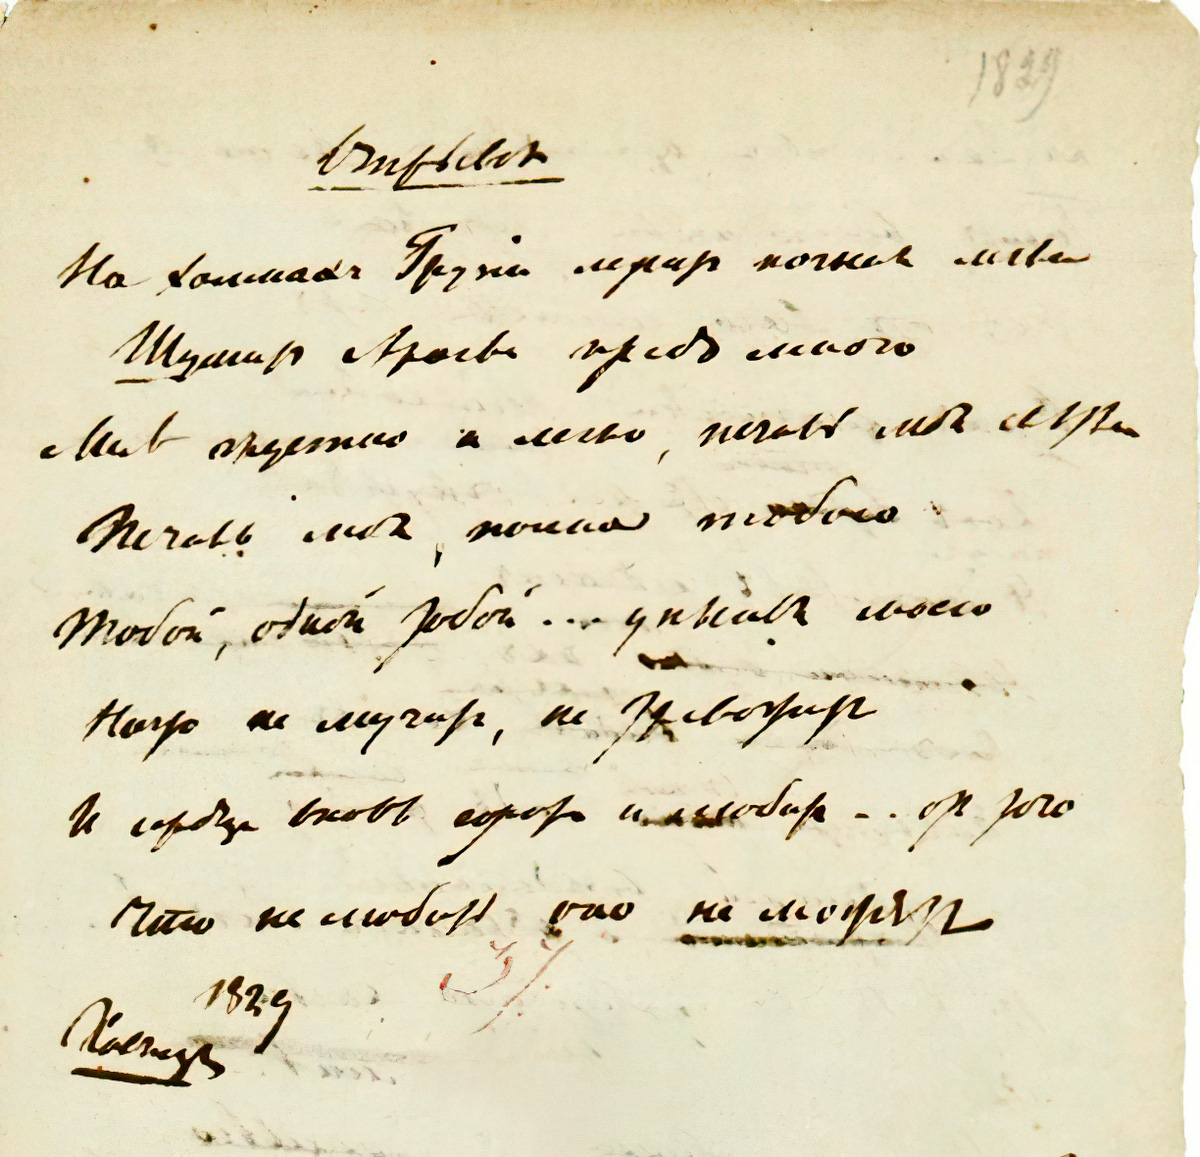 1829
Отрывок
На холмахъ Грузіи лежитъ ночная мгла
Шумитъ Арагва предъ мною
Мнѣ грустно и легко, печаль моя свѣтла
Печаль моя, полна тобою
Тобой, одной тобой... унынья моего
Ничто не мучитъ, не тревожитъ
И сердце вновь горитъ и любитъ... отъ того
Что не любить оно не можетъ
37
1829